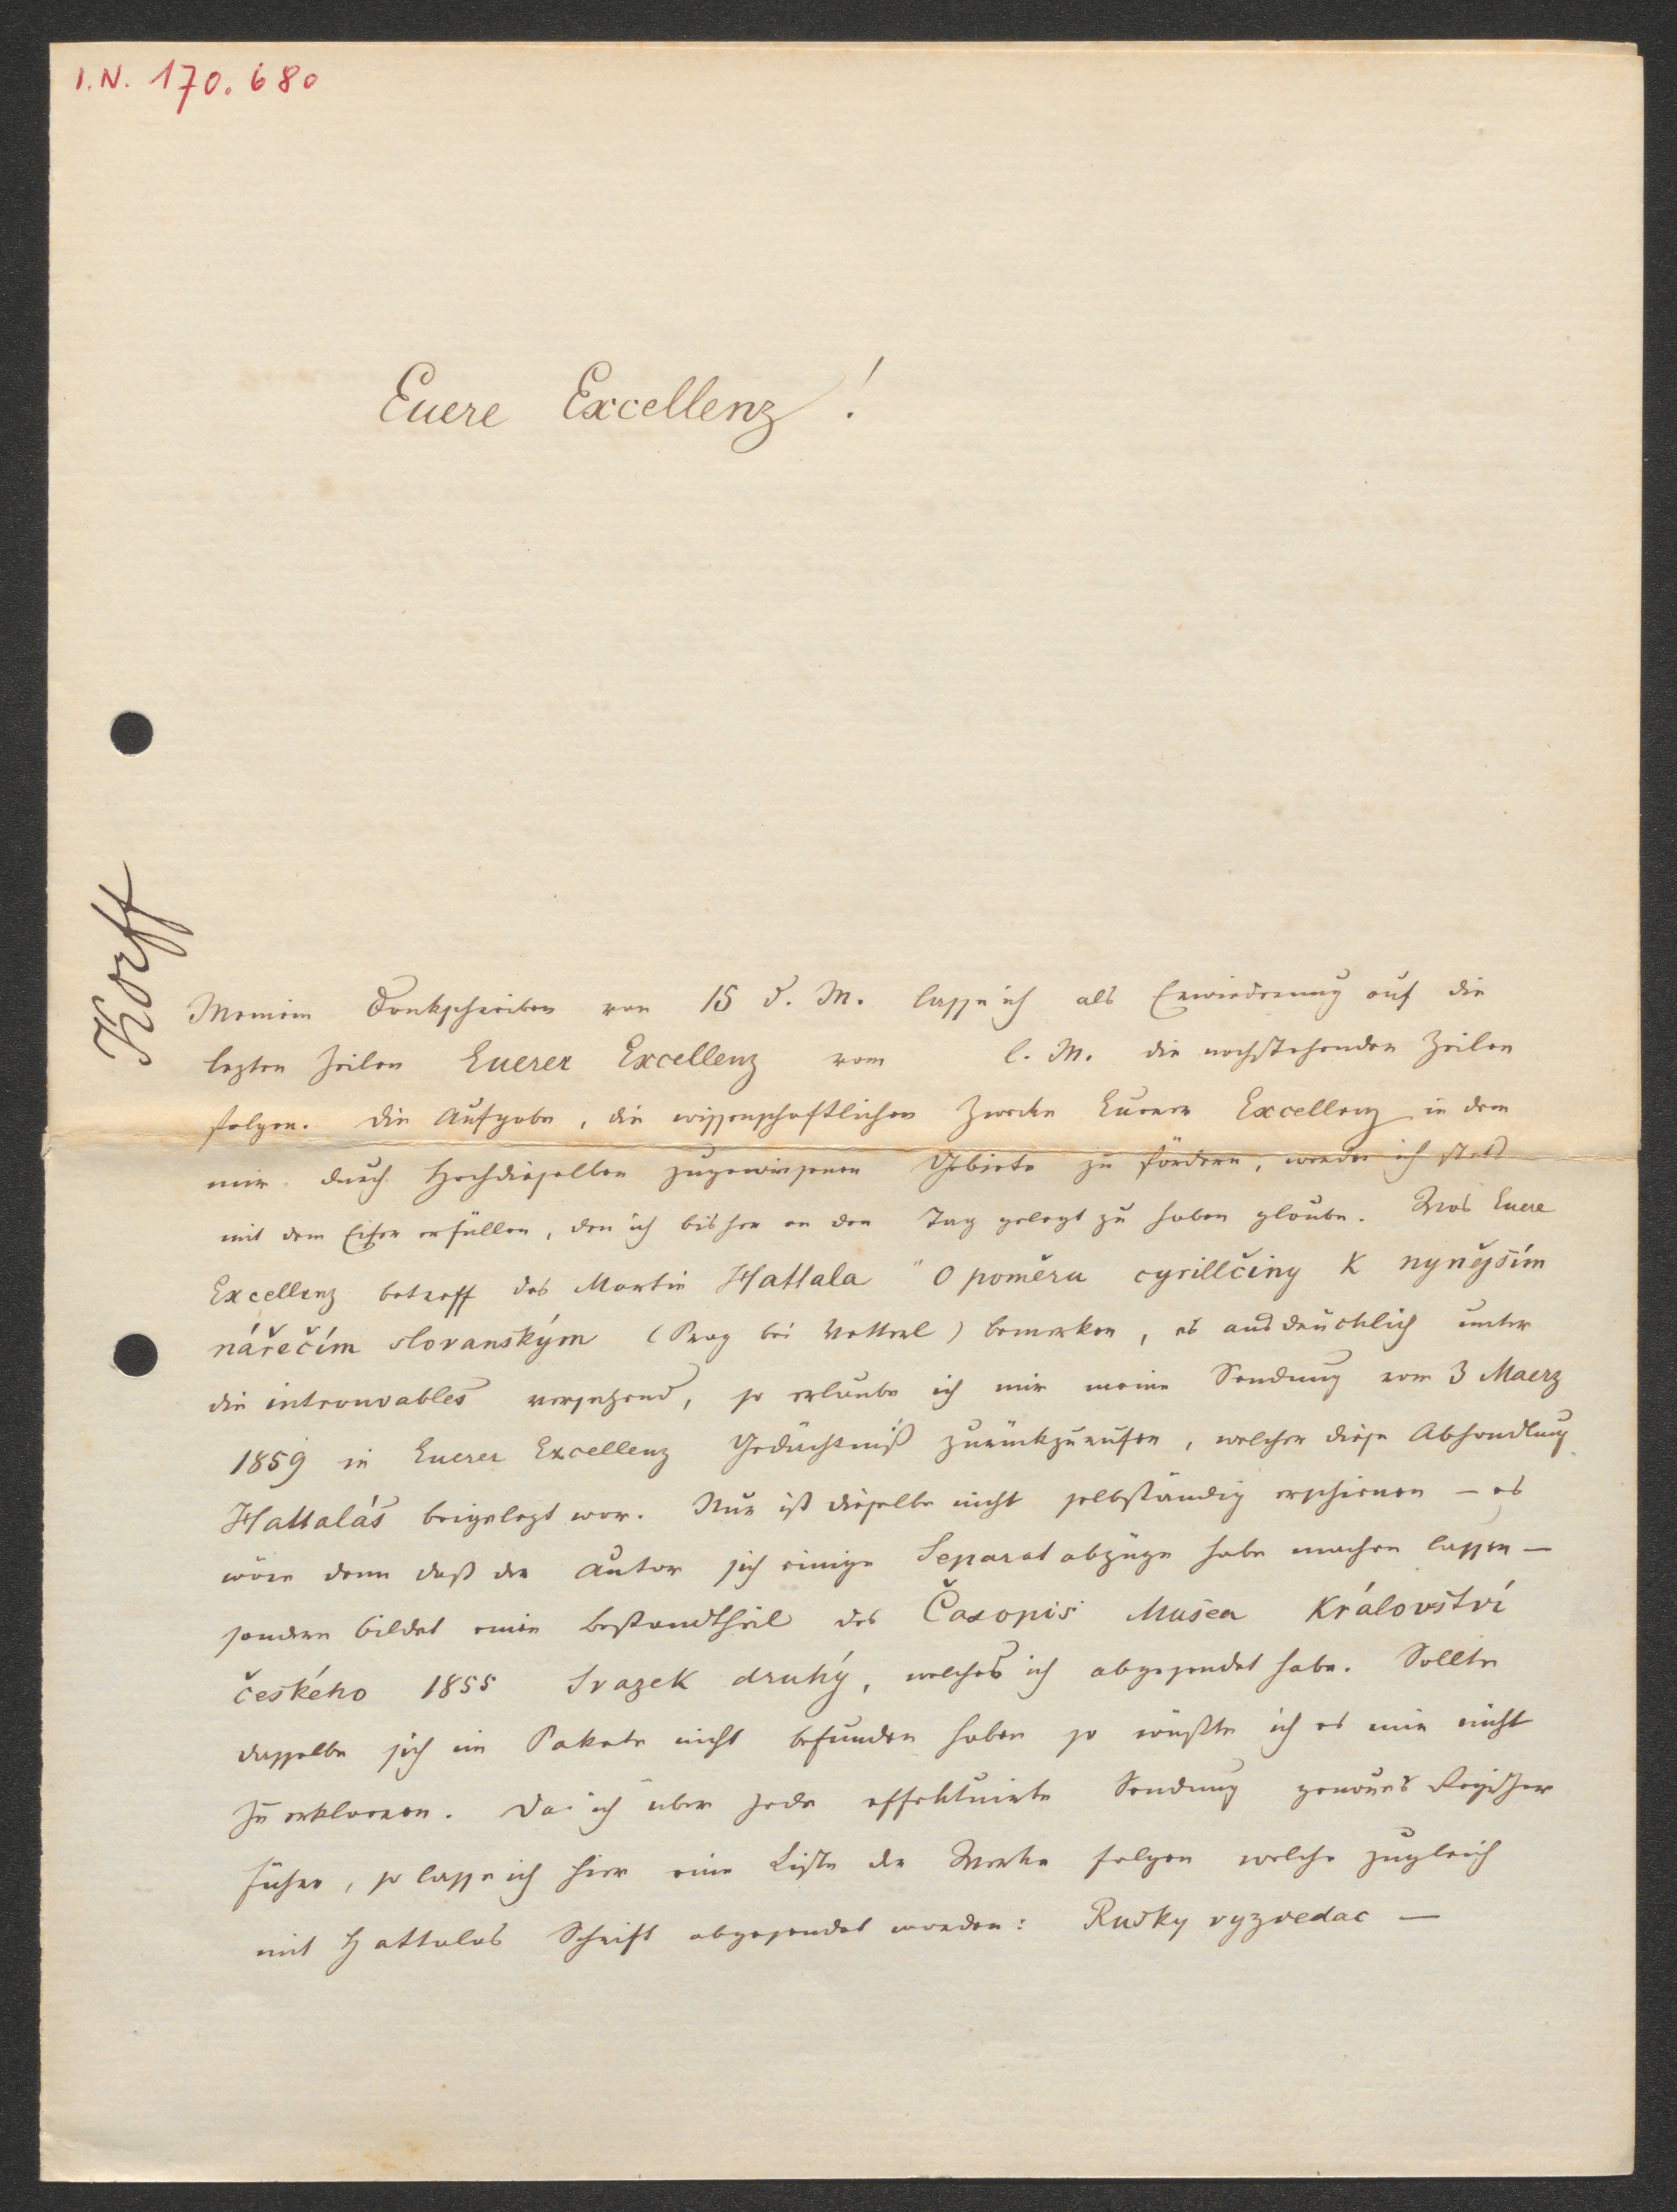 I.N. 170.680
Euere Excellenz!
Korff
Meinem Dankschreiben von 15 d. M. lasse ich als Erwiederung auf die
lezten Zeilen Euerer Excellenz vom l. M. die nachstehenden Zeilen
folgen. Die Aufgabe, die wissenschaftlichen Zwecke Euerer Excellenz in dem
mir durch Hochdieselben zugewiesenen Gebiete zu fördern, werde ich stets
mit dem Eifer erfüllen, den ich bisher an den Tag gelegt zu haben glaube. Was Euere
Excellenz betreff des Martin Hattala "O poměru cyrillčiny k nynějším
nářečím slovanským (Prag bei Nottrel) bemerken, es ausdrücklich unter
die introuvables versezend, so erlaube ich mir meine Sendung vom 3 Maerz
1859 in Euerer Excellenz Gedächtniß zurückzurufen, welcher diese Abhandlung
Hattala's beigelegt war. Nur ist dieselbe nicht selbständig erschienen – es
wäre denn daß der Autor sich einige Separatabzüge habe machen lassen –
sondern bildet einen Bestandtheil des Časopis Musea Královstvi
českého 1855 Svazek druhý, welches ich abgesendet habe. Sollte
dasselbe sich im Pakete nicht befunden haben so wüßte ich es mir nicht
zu erklaeren. Da ich über jede effektuirte Sendung genaues Register
führe, so lasse ich hier eine Liste der Werke folgen welche zugleich
mit Hattalas Schrift abgesendet worden: Rusky vyzvedac –